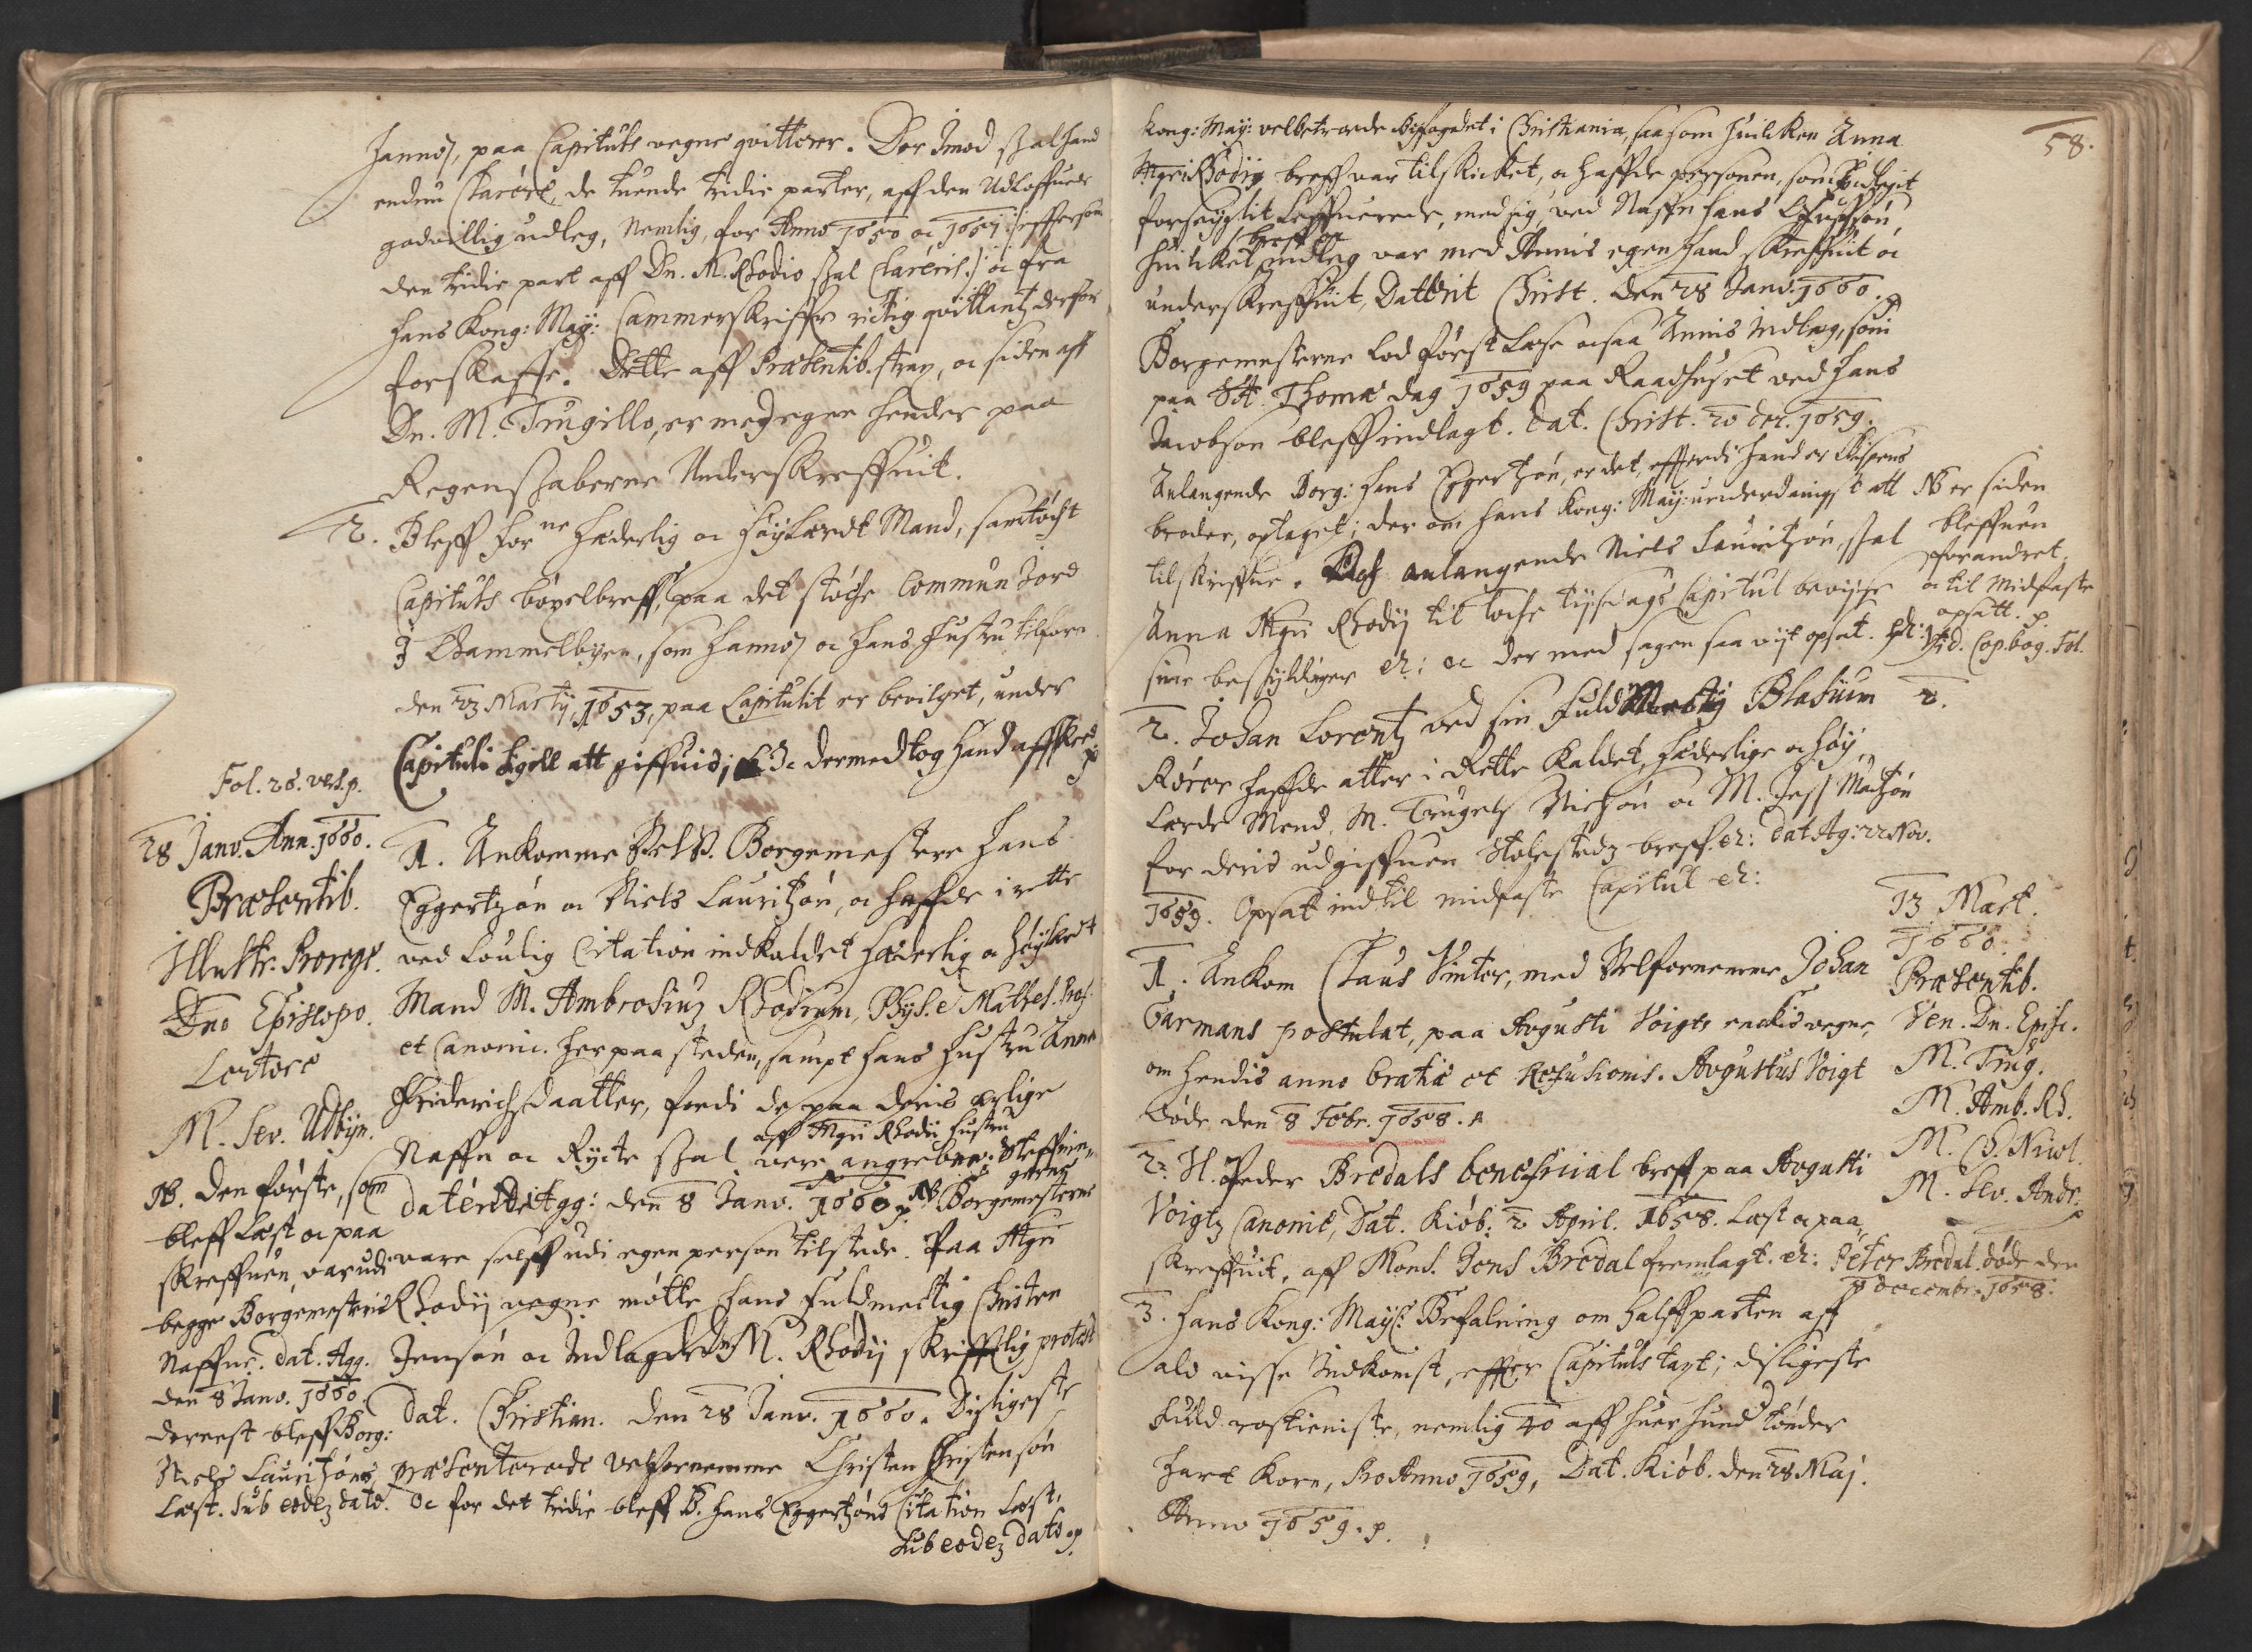 Jannos, paa Capituls vegne qvitterer. Der Imod skal hand
endnu Clarere, de tuende tridie parter, aff den Udloffuede
godvillig udleg, Nemlig, for Anno 1650 oc 1651 (: effterson
den tridie part aff Dn. M. Rhodio skal Clareris :) oc fra
hans Kong: May: Cammerskriffr rictig qvittantz derfor
forskaffe. Dette aff Præsentib. strax, oc siden aff
Dn. M. Trugillo, er med egne hender paa
Regenskaberne Underskreffuit.
2. Bleff for ne Hæderlig oc Høylærdt Mand, samtøcht
Capituls bøxelbreff, paa det støche Commun Jord
I Gammelbyen, som hannos oc hans Hustru tilforn
den 23 Martij, 1653, paa Capitulit er bevilget, under
Capituli Sigill att giffuis; oc dermed tog hand affskeed
Fol. 26. vers. p.
28 Janv. Ann. 1660.
Præsentib.
Illustr. Prorege.
Dno Episcopo.
Lectore
M. Sev. Udbyn.
NB. den første, som
bleff Læst oc paa
skreffuen, var udi
begge Borgemesteris
Naffne. dat. Agg.
den 8 Janv. 1660.
dernest bleff Borg:
Niels Lauritzøns
Læst. sub eodez dato.
1. Ankomme Borgemestere Hans
Eggertzøn oc Niels Lauritzøn, oc haffde i rette
ved Loulig Citation indkaldet Hæderlig oc Høylærdt
Mand M. Ambrosiuz Rhodium, Phys. et Mathes. Prof.
et Canonic. her paa steden, sampt hans Hustru Anna
Friderichsdaatter, fordi de paa deris ærlige
Naffn oc Rycte skal aff Mgri Rhodii Hustru vere angreben. Steffnin-
gerne
daterit Agg: den 8 Janv. 1660 p. NB Borgemesterne
vare selff udi egen person tilstede. Paa Mgri
Rhodij vegne mötte hans fuldmectig Christen
Jensøn oc Indlagde M. Rhodij skrifftlig protest
dat. Christian. den 28 Janv. 1660. Disligeste
præsenterede velfornemme Christen Christensøn
Oc for det tridie bleff B. Hans Eggertzøns Citation Læst.
sub eodez dato p.
58.
Kong: May: velbetroede Byfogedet i Christiania, saasom huilken Anna
Mgri Rhodij breff var tilskicket, oc haffde personen, som Indlegit
forseiglit leffuerede, med sig, ved Naffn Hans Olufsøn
huilket breff oc indleg var med Annis egen Haand skreffuit oc
underskreffuit, Daterit Christ. den 28 Janv. 1660. p
Borgemesterne lod først Læse ocsaa Annis Indleg, som
paa St. Thomæ dag 1659 paa Raadhuset ved Hans
Jacobsøn bleff indlagt. Dat. Christ. 20 dec. 1659.
Anlangende Borg: Hans Eggertzøn, er det, effterdi hand er Bispens
broder, optaget; der om hans Kong: May: underdanigst att
tilskriffue. Och anlangende Niels Lauritzøn, skal
Anna Mgri Rhodij til toche tijssdags Capitul bevisse
sine beskyldinger etc: oc der med sagen saa vijt opsat. etc:
NB er siden
bleffuen
forandret,
oc til Midfaste
opsatt. p.
Vid. Cop. bog. Fol.
2.
2. Johan Lorentz ved sin fuldmectig Blasium
Rörer haffde atter i Rette kaldet, Hæderlige oc Høy-
lærde Mend, M. Trugels Nielsøn oc M. Jess Madtzøn
for deris udgiffuen stolestedz breff. etc: dat Ag: 22 Nov.
1659. Opsat indtil midfaste Capitul etc:
13 Mart.
1660.
Præsentib.
Ven. Dn. Episc.
M. Trug.
M. Amb. Rh.
M. Ch. Nicol.
M. Sev. Andr. p
1. Ankom Claus Vinter, med Velfornemme Johan
Garmans postulat, paa Avgusti Voigts enckis vegne,
om hendis anno Gratiæ et Resusionis. Avgustus Voigt
døde den 8 Febr. 1658. A
2. H. Peder Bredals beneficial breff paa Avgusti
Voigtz Canonic, Dat. Kiøb: 2 April. 1658. Læst oc paa-
skreffuit, aff Mons. Jens Bredal fremlagt. etc: Peter Bredal døde den
decembr. 1658.
3. Hans Kong: Mays: Befalning om halffparten aff
ald visse Indkomst, effter Capituls taxt; disligeste
fuld rostieniste, nemlig 40 aff huer hund: tønder
hart Korn, Pro Anno 1659, Dat. Kiøb. den 28 Maj.
Anno 1659. p.